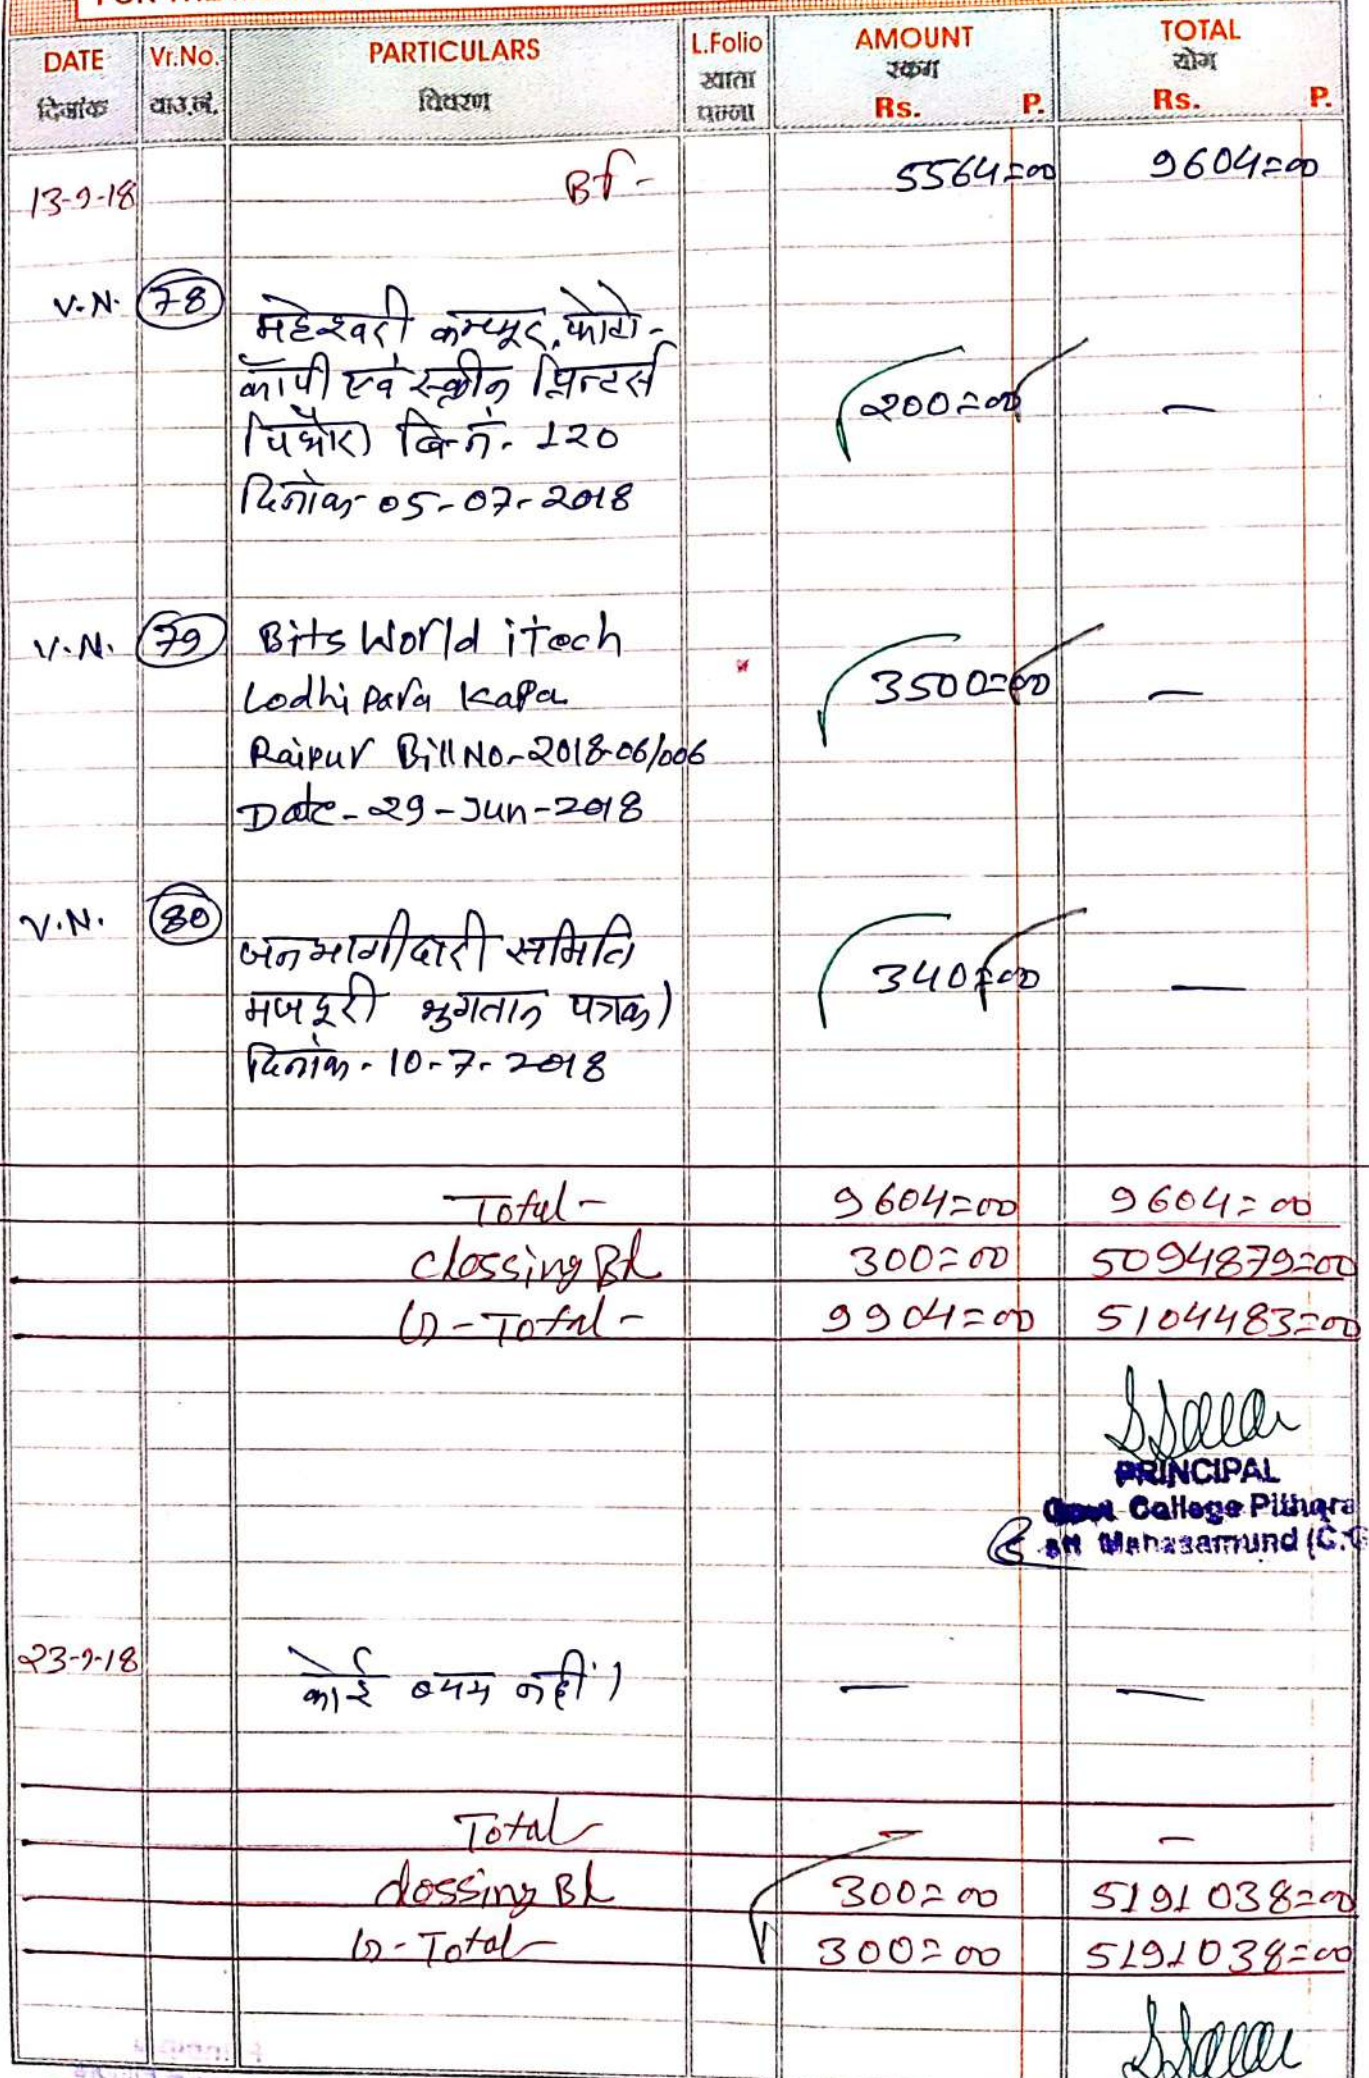 DATE Vr.No. PARTICULARS L.Folio AMOUNT TOTAL
दिनांक वाउ.नं. विवरण खाता पन्ना रकम योग
Rs. P. Rs. P.
13-9-18 Bf- 5564=00 9604=00
V.N. 78
महेश्वरी कम्प्यूटर, फोटो-
कॉपी एवं स्क्रीन प्रिन्टर्स 200=00 —
पिथौरा बि.नं. 120
दिनांक- 05-07-2018
V.N. 79 Bits World iTech
Lodhi Para Kapa 3500=00 —
Raipur Bill No-2018-06/006
Date- 29-Jun-2018
V.N. 80
जनभागीदारी समिति 340=00 —
मजदूरी भुगतान पत्रक)
दिनांक- 10-7-2018
Total- 9604=00 9604=00
Clossing Bl 300=00 5094879=00
G-Total- 9904=00 5104483=00
PRINCIPAL
Govt College Pithora
Mahasamund (C.G
23-9-18 कोई व्यय नहीं। — —
Total - -
Clossing Bl 300=00 5191038=00
G-Total 300=00 5191038=00